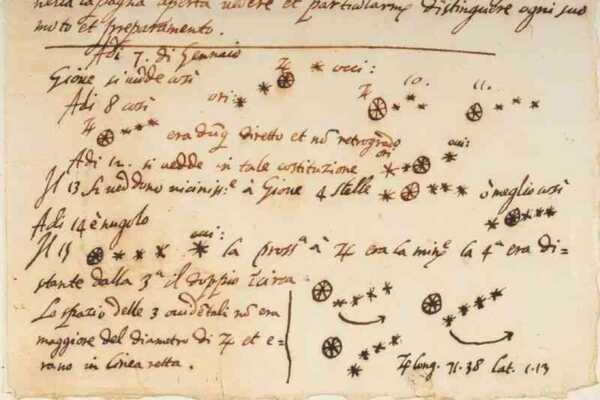 nella campagna aperta vedere et particularmᵉ distinguere ogni suo
moto et preparamento.
Adi 7. di Gennaio
Gioue si vedde così ori: ♃ occi:
Adi 8 così ♃ 10. 11.
♃ era dūq diretto et nō retrogrado
Adi 12. si vedde in tale costituzione ori occi:
Il 13 si veddono vicinissᵉ à Gioue 4 stelle ò meglio così
Adi 14 è nugolo
Il 15 occi: la prossᵃ à ♃ era la minᵉ la 4ᵃ era di=
stante dalla 3ᵃ il doppio circa
Lo spazio delle 3 occidētali nō era
maggiore del diametro di ♃ et e=
rano in linea retta.
♃ long. 71.38 lat. 1.13